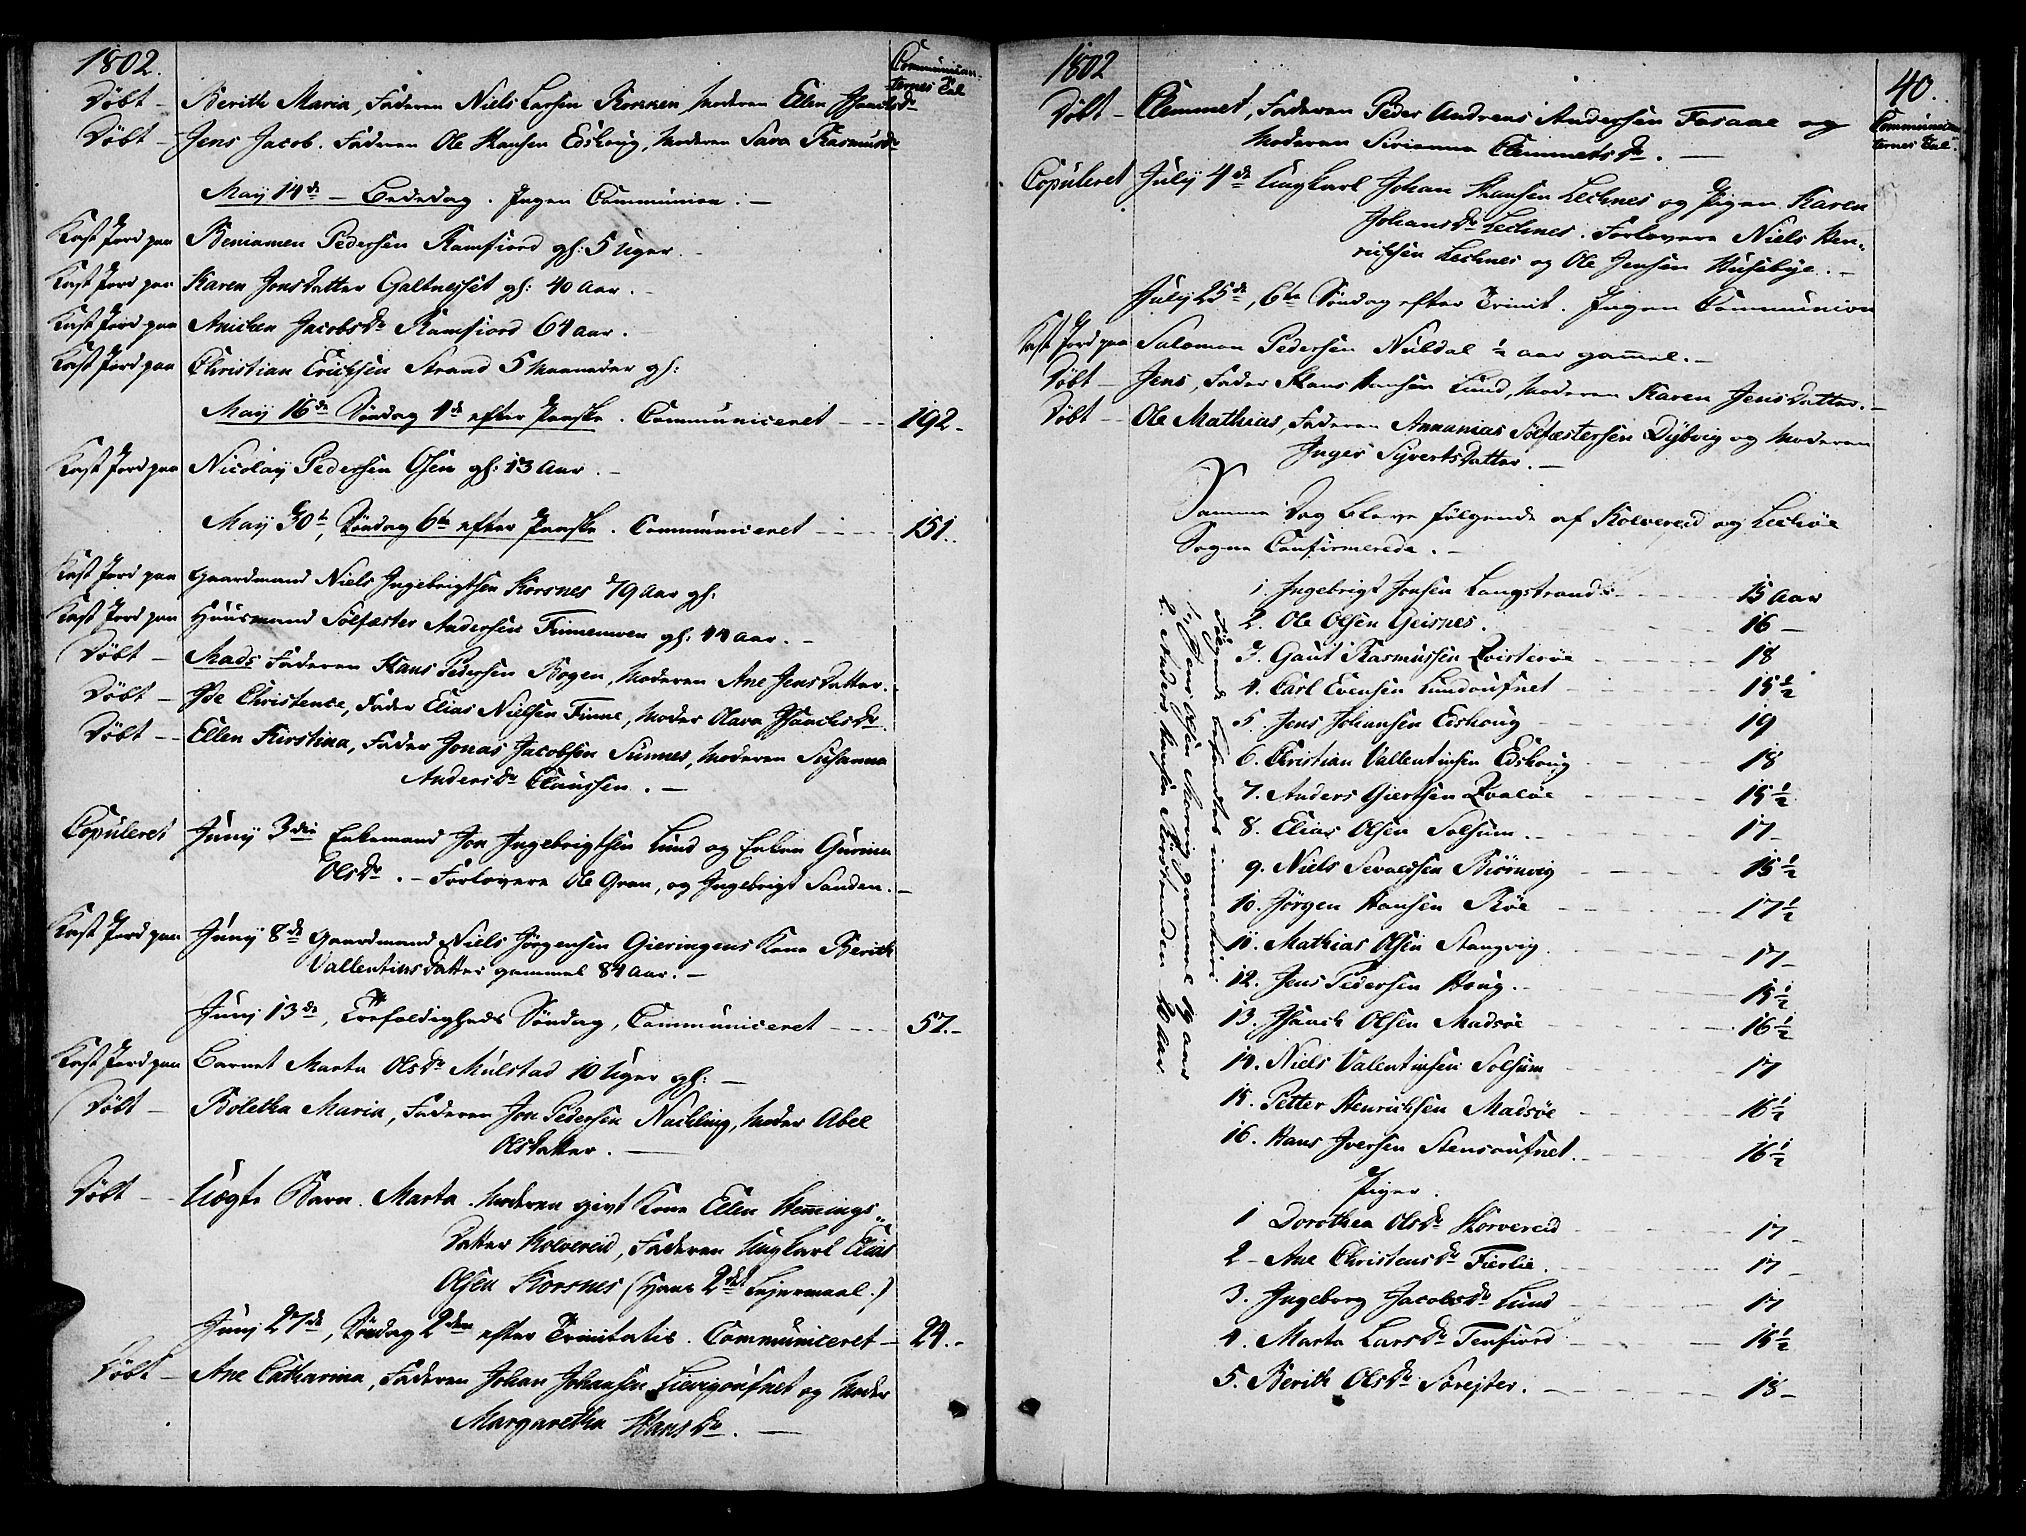 1802.
Communican-
ternes Tal
Døbt – Berith Maria, Faderen Niels Larsen Kornen, Moderen Ellen Isachsdr
Døbt – Jens Jacob. Faderen Ole Hansen Edshoug, Moderen Sara Rasmusdr
May 14de – Bededag. Ingen Communion. –
Kast Jord paa Beniamen Pedersen Ramfiord gl: 5 Uger. –
Kast Jord paa Karen Jonsdatter Galtnesset gl: 40 Aar. –
Kast Jord paa Anichen Jacobsdr Ramfiord 64 aar. –
Kast Jord paa Christian Erichsen Strand 5 Maaneder gl:
May 16de Søndag 4de efter Paaske. Communiceret – – – 192 –
Kast Jord paa Nicolay Pedersen Osen gl: 13 Aar. –
May 30te, Søndag 6te efter Paaske. Communiceret – – – 151.
Kast Jord paa Gaardmand Niels Ingebrigtsen Korsnes 79 aar gl.
Kast Jord paa Huusmand Sølfæster Andersen Finnemoen gl: 44 aar. –
Døbt – Mads Faderen Hans Pedersen Bogen, Moderen Ane Jensdatter.
Døbt – Ide Christence, Fader Elias Nielsen Finne, Moder Olava Isachsdr
Døbt – Ellen Kirstina, Fader Jonas Jacobsen Sunnes, Moderen Susanna
Andersdr Claussen. –
Copuleret Juny 3die Enkemand Jon Ingebrigtsen Lund og Enken Gurina
Olsdr. – Forlovere Ole Gran, og Ingebrigt Sanden. –
Kast Jord paa Juny 8de Gaardmand Niels Jørgensen Gieringens Kone Berith
Vallentinsdatter gammel 84 Aar. –
Juny 13de, Trefoldigheds Søndag, Communiceret – – – 57. –
Kast Jord paa Barnet Marta Olsdr Mulstad 10 Uger gl: –
Døbt – Boletha Maria, Faderen Jon Pedersen Nachling, Moder Abel
Olsdatter. –
Døbt – Uægte Barn. Marta. Moderen givt Kone Ellen Hemings-
datter Kolvereid, Faderen Ungkarl Elias
Olsen Korsnes (Hans 2det Lejermaal.)
Juny 27de, Søndag 2den efter Trinitatis. Communiceret – 24. –
Døbt – Ane Catharina, Faderen Johan Johansen Lievigoufnet og Moder
Margaretha Hansdr. –
1802
40.
Communican-
ternes Tal.
Døbt – Clemmet, Faderen Peder Andreas Andersen Fosaae og
Moderen Sirianna Clemmetsdr. –
Copuleret July 4de Ungkarl Johan Hansen Lechnes og Pigen Karen
Johansdr Lechnes. Forlovere Niels Hen-
richsen Lechnes og Ole Jensen Husebye. –
July 25de, 6te Søndag efter Trinit. Ingen Communion
Kast Jord paa Salomon Pedersen Nubdal ½ aar gamel. –
Døbt – Jens, Fader Hans Hansen Lund, Moderen Karen Jensdatter. –
Døbt – Ole Mathias, Faderen Annanias Sølfæstersen Dybvig og Moderen
Inger Syvertsdatter. –
Samme Dag bleve følgende af Kolvereid og Lechøe
Sogne Confirmerede. –
1. Ingebrigt Jonsen Langstrand 15 Aar
2. Ole Olsen Geisnes. 16 –
3. Gaut Rasmussen Qvisterøe 18
4. Carl Evensen Lundoufnet 15½
5. Jens Johansen Edshoug 19
6. Christian Vallentinsen Edshoug 18
7. Anders Giertsen Qvaløe 15½
8. Elias Olsen Solsum. 17 –
9. Niels Sevaldsen Biørnvig 15½
10. Jørgen Hansen Røe 17½
11. Mathias Olsen Stangvig. 17 –
12. Jens Pedersen Houg. 15½
13. Isaach Olsen Madsøe 16½
14. Niels Valentinsen Solsum 17
15. Petter Henrichsen Madsøe 16½
16. Hans Iversen Stensoufnet. 16½
Piger.
1 Dorothea Olsdr Horvereid 17 –
2 – Ane Christensdr Fierlie. 17 –
3. Ingeborg Jacobsdr Lund 17
4. Marta Larsdr Tenfiord 15½
5. Berith Olsdr Sørejter. – 18 –
Følgende befandtes immaturi
1. Jens Olsen Morvig gammel 19 aar
2. Anders Hansen Nordstranden 20 Aar